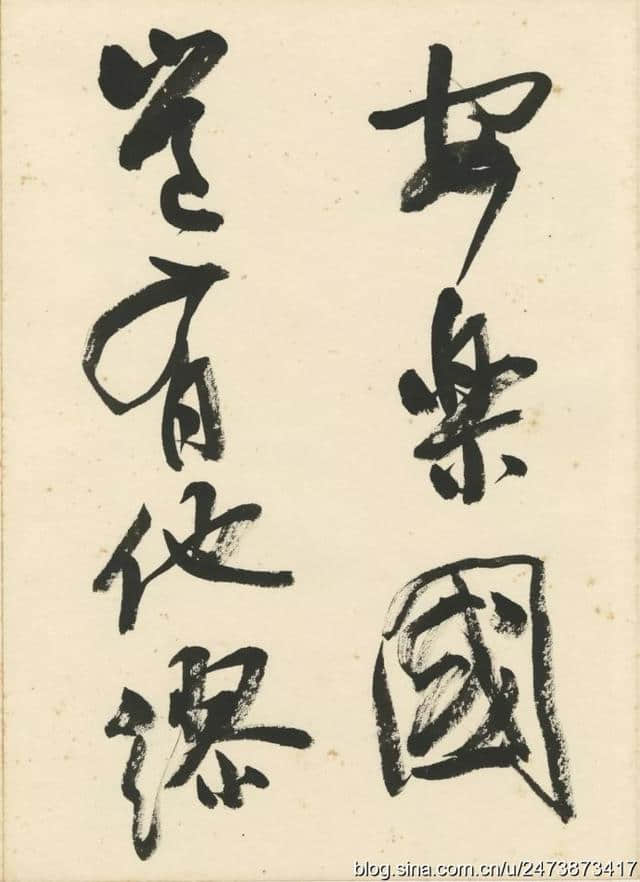 安樂國
豈有他繆
blog.sina.com.cn/u/2473873417